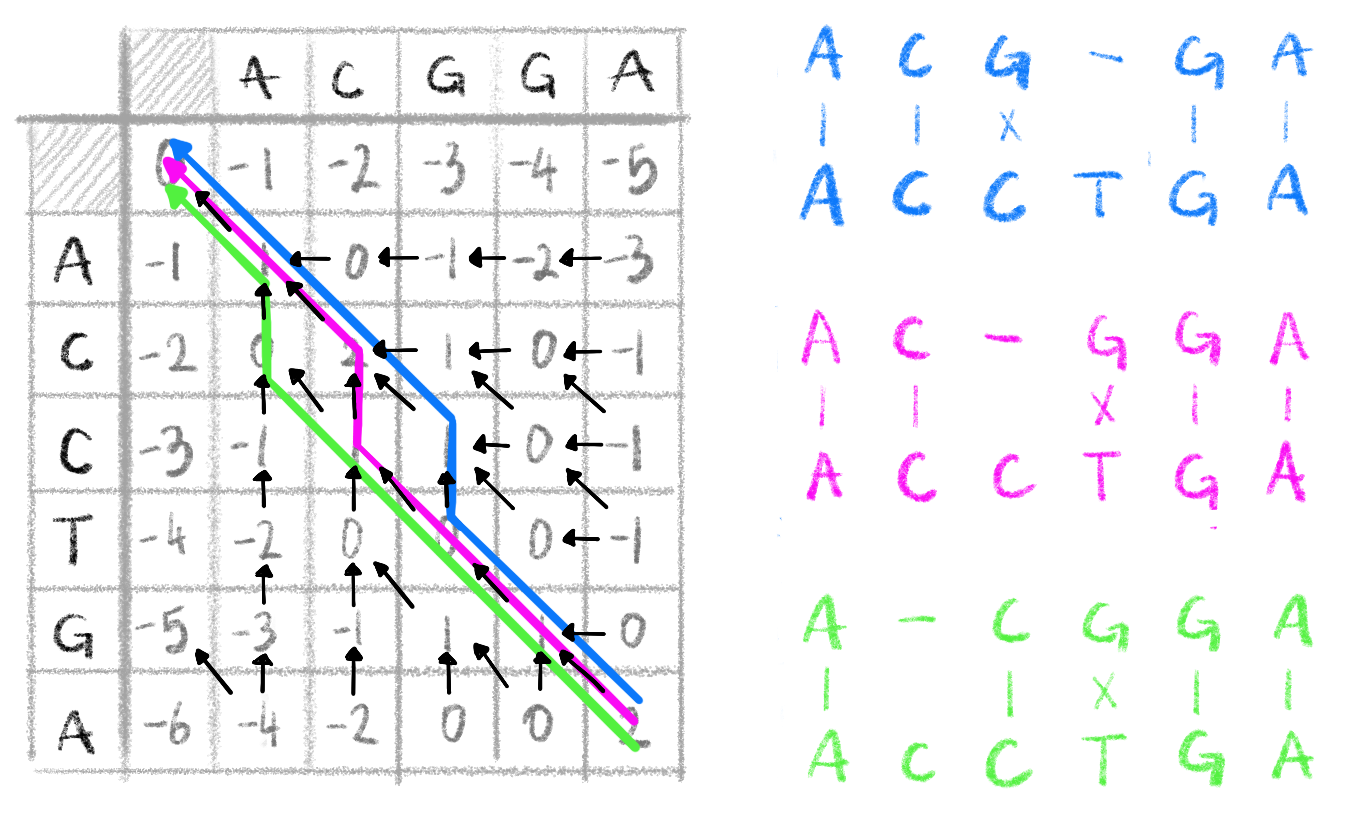 A C G G A
0 -1 -2 -3 -4 -5
A -1 1 0 -1 -2 -3
C -2 0 2 1 0 -1
C -3 -1 1 1 0 -1
T -4 -2 0 0 0 -1
G -5 -3 -1 1 1 0
A -6 -4 -2 0 0 2
A C G - G A
| | x | |
A C C T G A
A C - G G A
| | x | |
A C C T G A
A - C G G A
| | x | |
A C C T G A